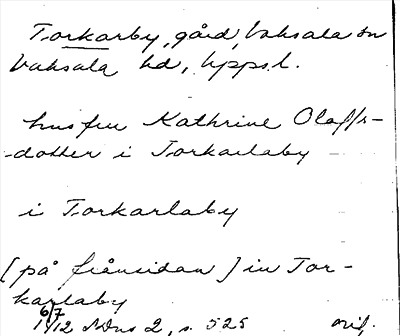 Torkarby, gård, Vaksala sn
Vaksala hd, Uppsl.
husfru Kathrine Olaffs-
-dotter i Torkarlaby
i Torkarlaby
[på frånsidan] in Tor-
karlaby
6/7
1512 SDns 2, s. 525 orig.